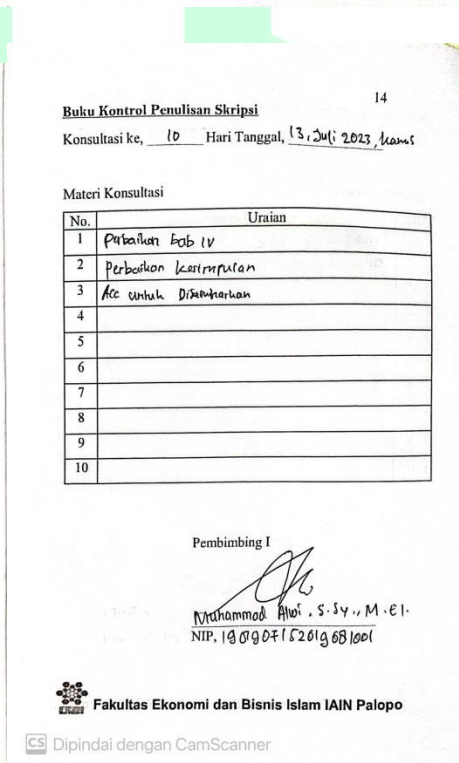 14
Buku Kontrol Penulisan Skripsi
Konsultasi ke, 10 Hari Tanggal, 13, Juli 2023, kamis
Materi Konsultasi
No. Uraian
1 Perbaikan Bab IV
2 Perbaikan Kesimpulan
3 Acc untuk Diseminarkan
4
5
6
7
8
9
10
Pembimbing I
Muhammad Alwi, S.Sy., M.EI.
NIP.
Fakultas Ekonomi dan Bisnis Islam IAIN Palopo
CS Dipindai dengan CamScanner